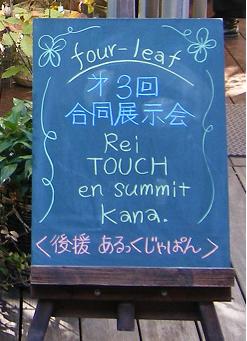 four-leaf
第3回
合同展示会
Rei
TOUCH
en summit
Kana.
<後援 あるっくじゃぱん>